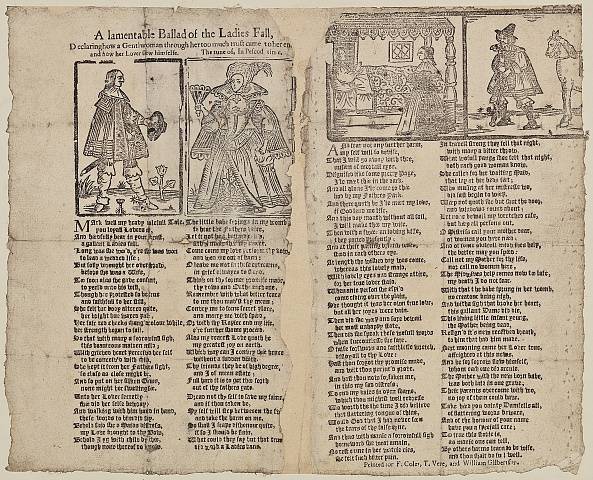 A lamentable Ballad of the Ladies Fall,
Declaring how a Gentlewoman through her too much trust came to her end,
and how her Lover slew himselfe. The tune of, In Pescod time.
MArk well my heavy dolefull Tale,
you loyall Lovers all,
And heedfully bear in your brest,
a gallant Ladies fall.
Long was she
to lead a wedded life;
But folly wrought her overthrow,
before she was a Wife.
Too soon alas she gave consent,
to yeeld unto his will,
Though he protested to be true
and faithfull to her still,
She felt her body altered quite,
her bright hue waxed pale,
Her fair red cheeks
her strength began to fail.
So that with many a sorrowfull sigh,
this beauteous maiden milde,
With grieved heart perceiv'd her self
to be conceiv'd with childe,
She kept it from her Fathers sight,
so close as close might be,
And so put on her silken Gown,
none might her swelling see.
Unto her Lover secretly
she did her selfe bewray;
And walking with him hand in hand,
these words to him did say,
Behold said she a Maids distress,
my Love brought to thy
Behold I go with childe by thee,
though none thereof do know.
The little babe springs in my womb
to hear the Fathers voice,
Let it not be a bastard
Come come my love
and wed me out of hand:
O leave me not in this extreme,
in grief alwayes to stand.
Think on thy former promise made,
thy vows and Oaths each one,
Remember with what bitter tears
to me thou mad'st thy moan;
Convey me to some secret place,
and marry me with speed,
Or with thy Rapier end my life,
e're further shame proceed.
Alas my dearest Love quoth he
my greatest joy on earth,
Which way can I convey thee hence
without a sudden death?
Thy friends they be of high degree,
and I of mean estate,
Full hard it is to get thee forth
out of thy fathers gate.
Dread not thy self to save my fame,
and if thou taken be,
My self will step between the
and take the harm on me.
So shall I scape dishonour quite,
if so I should be slain,
What could they say but that true
did work a Ladies bane.
And fear not any further harm,
my self will so devise,
That I will go away with thee,
unseen of mortall eyes.
Disguised like some pretty Page,
I'le meet thee in the dark,
And all alone I'le come to thee
hard by my Fathers Park.
And there quoth he I'le meet my love,
if God lend me life,
And this day month without all fail,
I will make thee my wife.
Then with a sweet and loving kisse,
they parted presently:
And at their parting brinish tears
stood in each others eye.
At length the wished day was come,
whereon this lovely maid,
With lovely eyes and strange attire,
for her true lover staid.
When any person she espy'd
come riding o're the plain,
She thought it was her own true love,
but all her hopes were vain.
Then did she weep and sore bewail
her most unhappy state,
Then did she speak these wofull words
when succourless she sate.
O false forsworn and faithlesse wretch,
disloyall to thy Love:
Hast thou forgot thy promise made,
and wilt thou perjur'd prove.
And hast thou now forsaken me,
in this my great distress,
To end my dayes in open shame,
which thou might'st well redresse
Wo worth the time I did believe
that flattering tongue of thine,
Would God that I had never seen
the tears of thy false eyne.
And thus with many a sorrowfull sigh
homewards she went amain,
No rest came in her watry eies,
she felt such bitter pain.
In travell strong they fell that night,
with many a bitter throw,
What wofull pangs she felt that night,
doth each good woman know.
She called for her waiting Maid,
that lay at her beds feet;
Who musing at her mistresse wo,
did fast begin to weep.
Weep not quoth she but shut the door,
and windows round about:
Let none bewail my wretched case,
but keep all persons out.
O Mistris call your mother dear,
of women you have need:
And of some skilfull midwives help,
the better may you speed;
Call not my Mother for thy life,
nor call no women here;
The Midwives help comes now too late,
my death I do not fear.
With that the babe sprang in her womb
no creature being nigh,
And with a sigh that broke her heart,
this gallant Dame did die,
This living little infant young,
the Mother being dead,
Resign'd it's new received breath,
to him that had him made.
Next morning came her Lover true,
affrighted at this news,
And he for sorrow slew himself,
whom each one did accuse.
The Mother with the new born babe,
was both laid in one grave;
Their parents overcome with wo,
no joy of them could have.
Take heed you dainty Damsels all,
of flattering words beware,
And of the honour of your name
have you a special care:
Too true this story is,
as many one can tell,
By others harms learn to be wise,
and thou shalt do full well.
Printed for F. Coles, T. Vere, and William Gilbertson.